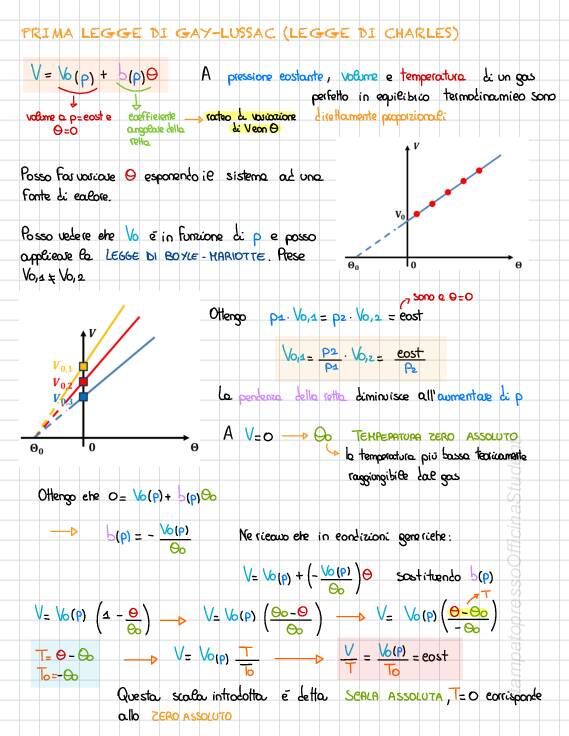 PRIMA LEGGE DI GAY-LUSSAC (LEGGE DI CHARLES)
V = V₀(p) + b(p)Θ
volume a p=cost e Θ=0
coefficiente angolare della retta → rateo di variazione di V con Θ
A pressione costante, volume e temperatura di un gas
perfetto in equilibrio termodinamico sono
direttamente proporzionali
Posso far variare Θ esponendo il sistema ad una
fonte di calore.
Posso vedere che V₀ è in funzione di p e posso
applicare la LEGGE DI BOYLE-MARIOTTE. Prese
V₀,₁ ≠ V₀,₂
V
V₀
Θ₀ 0 Θ
V
V₀,₁
V₀,₂
V₀,₃
Θ₀ 0 Θ
sono a Θ=0
Ottengo p₁·V₀,₁ = p₂·V₀,₂ = cost
V₀,₁ = p₂/p₁ · V₀,₂ = cost/p₂
La pendenza della retta diminuisce all'aumentare di p
A V=0 → Θ₀ TEMPERATURA ZERO ASSOLUTO
↳ la temperatura più bassa teoricamente
raggiungibile dal gas
Ottengo che 0 = V₀(p) + b(p)Θ₀
→ b(p) = - V₀(p)/Θ₀
Ne ricavo che in condizioni generiche:
V = V₀(p) + (- V₀(p)/Θ₀)Θ sostituendo b(p)
V = V₀(p) (1 - Θ/Θ₀) → V = V₀(p) ((Θ₀-Θ)/Θ₀) → V = V₀(p) ((Θ-Θ₀)/-Θ₀)
T
T = Θ - Θ₀
T₀ = -Θ₀
→ V = V₀(p) T/T₀ → V/T = V₀(p)/T₀ = cost
Questa scala introdotta è detta SCALA ASSOLUTA, T=0 corrisponde
allo ZERO ASSOLUTO